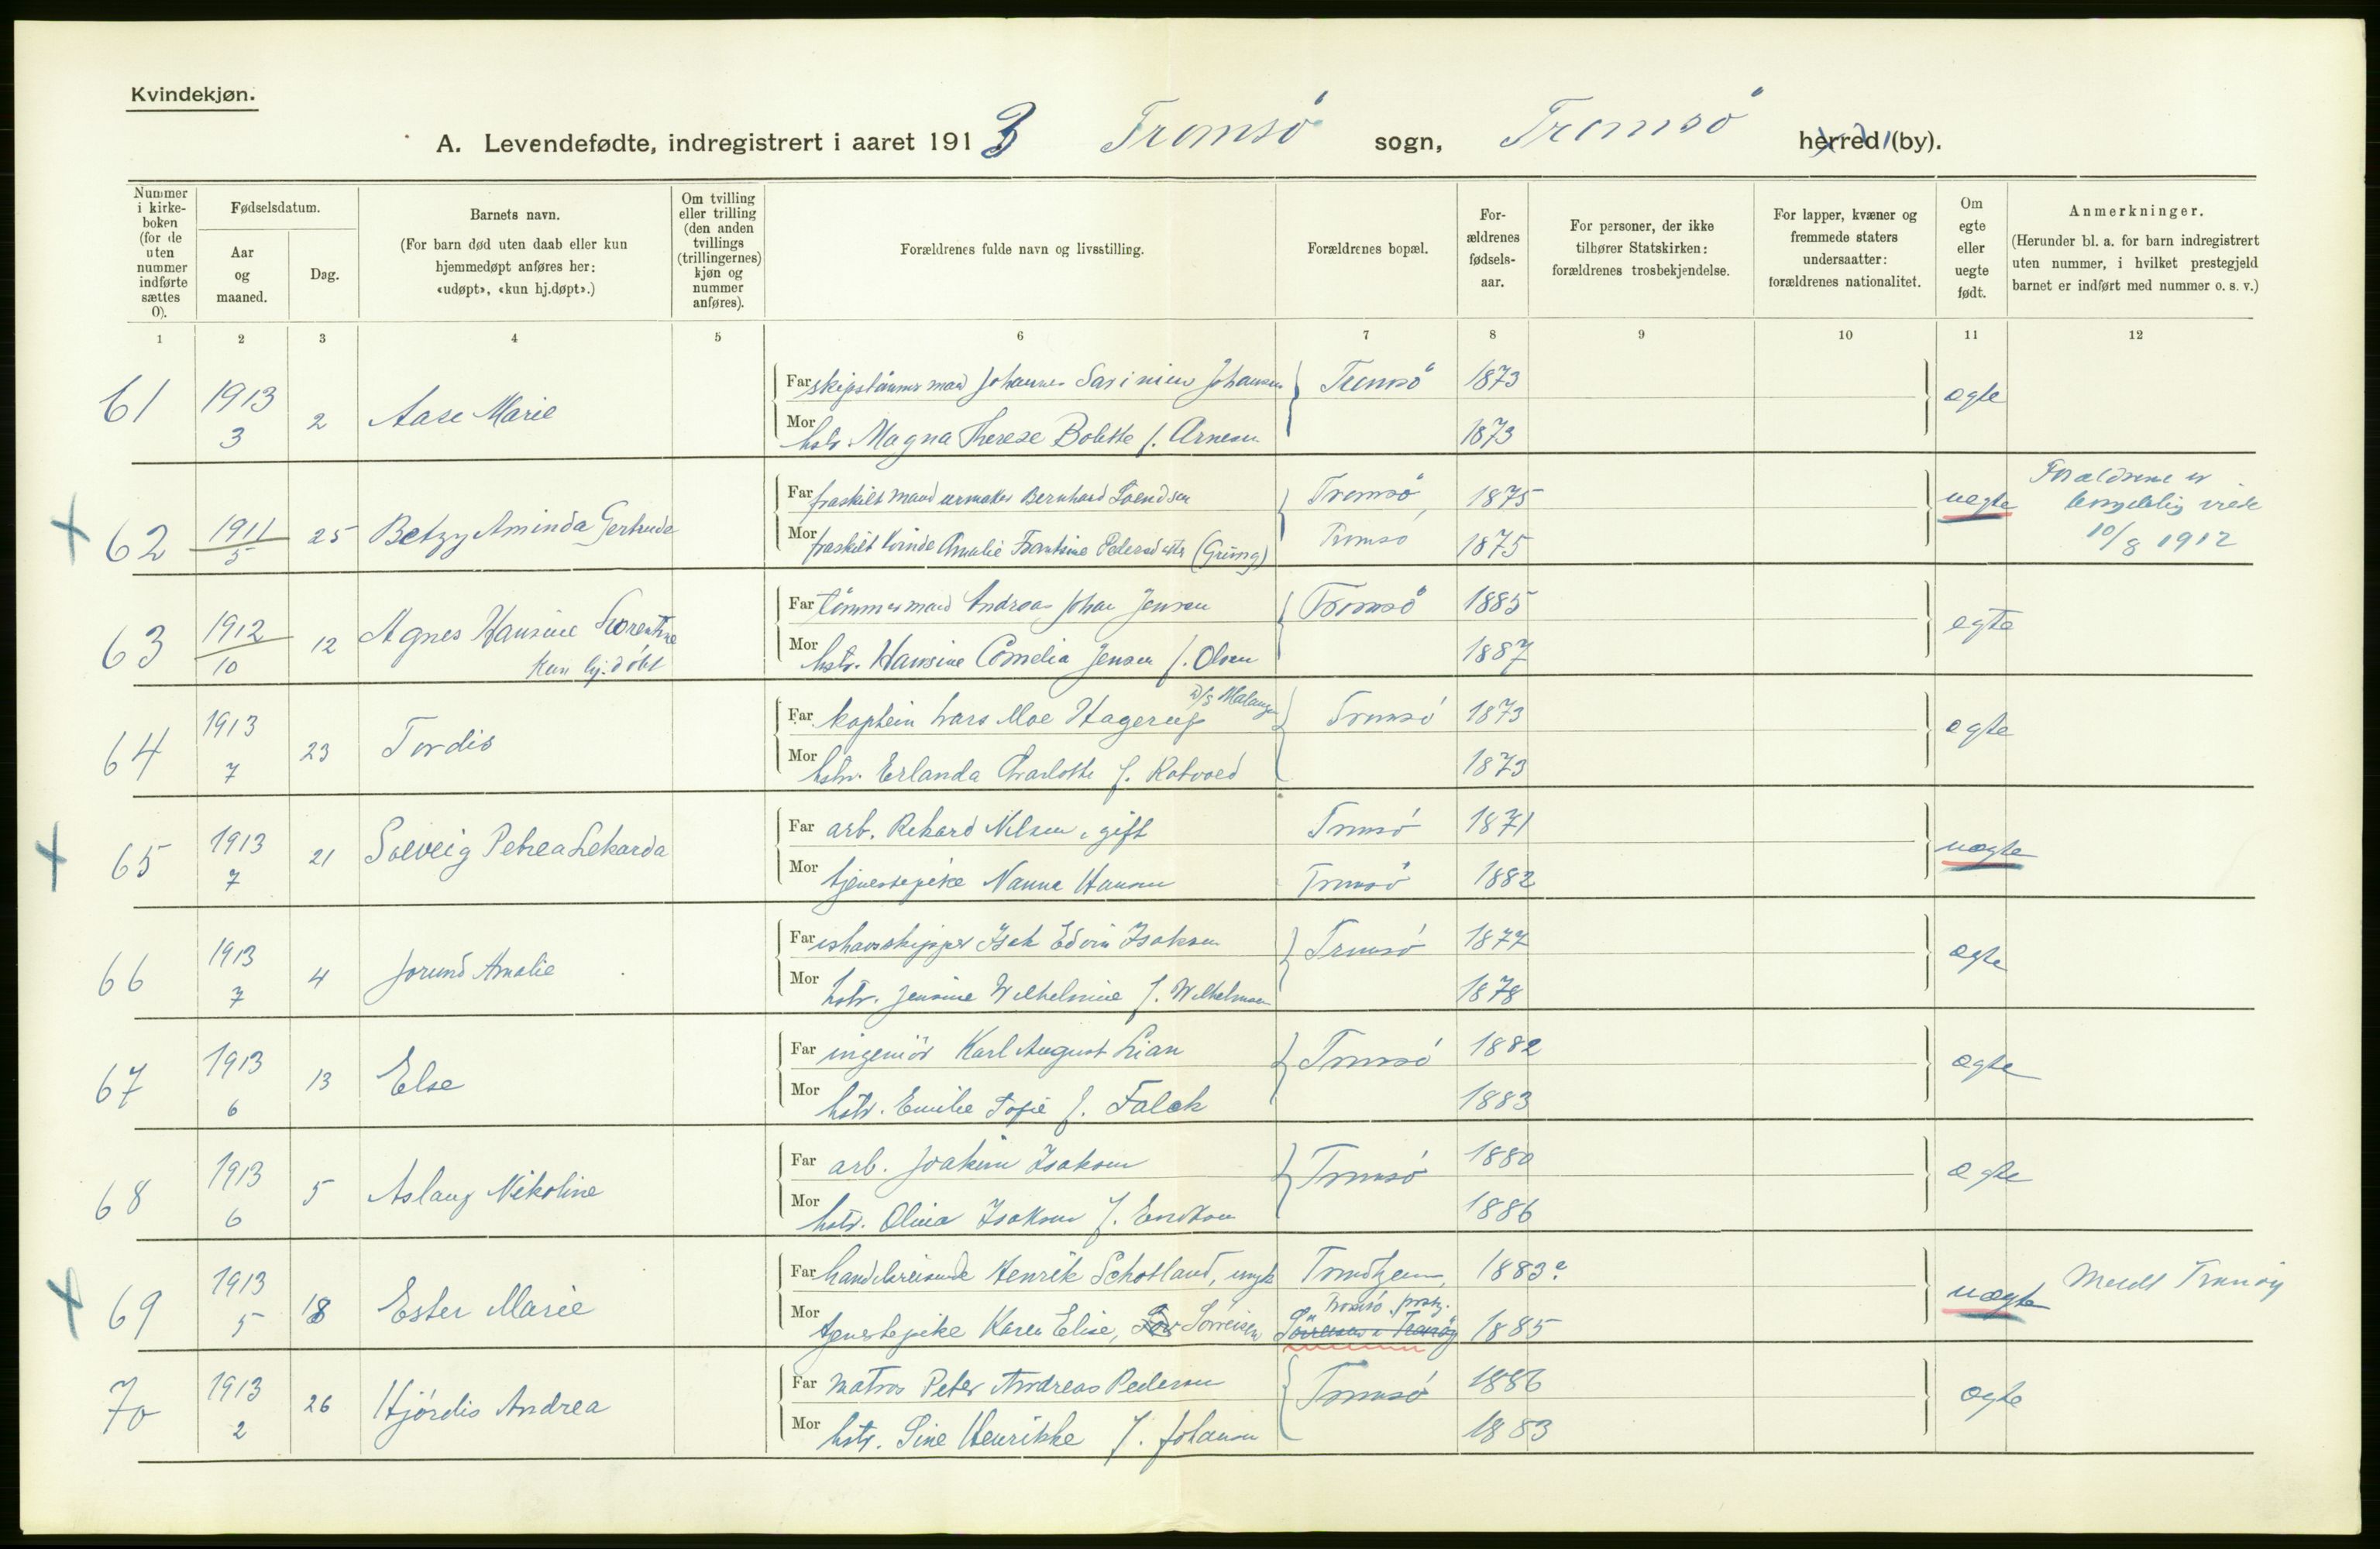 Kvindekjøn.
A. Levendefødte, indregistrert i aaret 1913 Tromsö sogn, Tromsö herred (by).
Nummer i kirke-boken (for de uten nummer indførte sættes 0).
Fødselsdatum.
Aar og maaned.
Dag.
Barnets navn.
(For barn død uten daab eller kun hjemmedøpt anføres her: «udøpt», «kun hj.døpt».)
Om tvilling eller trilling (den anden tvillings (trillingernes) kjøn og nummer anføres).
Forældrenes fulde navn og livsstilling.
Forældrenes bopæl.
For-ældrenes fødsels-aar.
For personer, der ikke tilhører Statskirken: forældrenes trosbekjendelse.
For lapper, kvæner og fremmede staters undersaatter: forældrenes nationalitet.
Om egte eller uegte født.
Anmerkninger.
(Herunder bl. a. for barn indregistrert uten nummer, i hvilket prestegjeld barnet er indført med nummer o. s. v.)
1 2 3 4 5 6 7 8 9 10 11 12
61 1913 3 2 Aase Marie
Far skipstömmermand Johannes Johansen Tromsö 1873 ægte
Mor hstr. Magna Therese Bolette f. Arnesen 1873
+ 62 1911 5 25 Betzy Aminda Gertrude
Far fraskilt mand urmaker Bernhard Svendsen Tromsö, 1875 uegte
Mor fraskilt kvinde Amalie Frantsine Pedersdatter (Grüng) Tromsö 1875
Forældrene er borgerlig viede 10/8 1912
63 1912 10 12 Agnes Hansine Lorentine
kun hj.döbt
Far tömmermand Andreas Johan Jensen Tromsö 1885 egte
Mor hstr. Hansine Cornelia Jensen f. Olsen 1887
64 1913 7 23 Tordis
Far kaptein Lars Moe Hagerup D/S Malangen Tromsö 1873 egte
Mor hstr. Erlanda Charlotte f. Kotvoed 1873
+ 65 1913 7 21 Solveig Petrea Lekarda
Far arb. Rikard Nilsen, gift Tromsö 1871 uegte
Mor tjenestepike Nanna Hansen Tromsö 1882
66 1913 7 4 Jorund Amalie
Far ishavsskipper Isak Edvin Isaksen Tromsö 1877 ægte
Mor hstr. Jensine Wilhelmine f. Wilhelmsen 1878
67 1913 6 13 Else
Far ingeniör Karl August Lian Tromsö 1882 ægte
Mor hstr. Emilie Sofie f. Falck 1883
68 1913 6 5 Aslaug Nikoline
Far arb. Joakim Isaksen Tromsö 1880 ægte
Mor hstr. Olina Isaksen f. 1886
+ 69 1913 5 18 Ester Marie
Far handelsreisende Henrik Schotland, ungk Trondhjem, 1883? uægte Meldt Tranöy
Mor tjenestepike Karen Elise, Sörreisen Tromsö prstg. Sörreisen i Tranöy 1885
70 1913 2 26 Hjördis Andrea
Far matros Peter Andreas Pedersen Tromsö 1886 ægte
Mor hstr. Sine Henrikke f. Johansen 1883